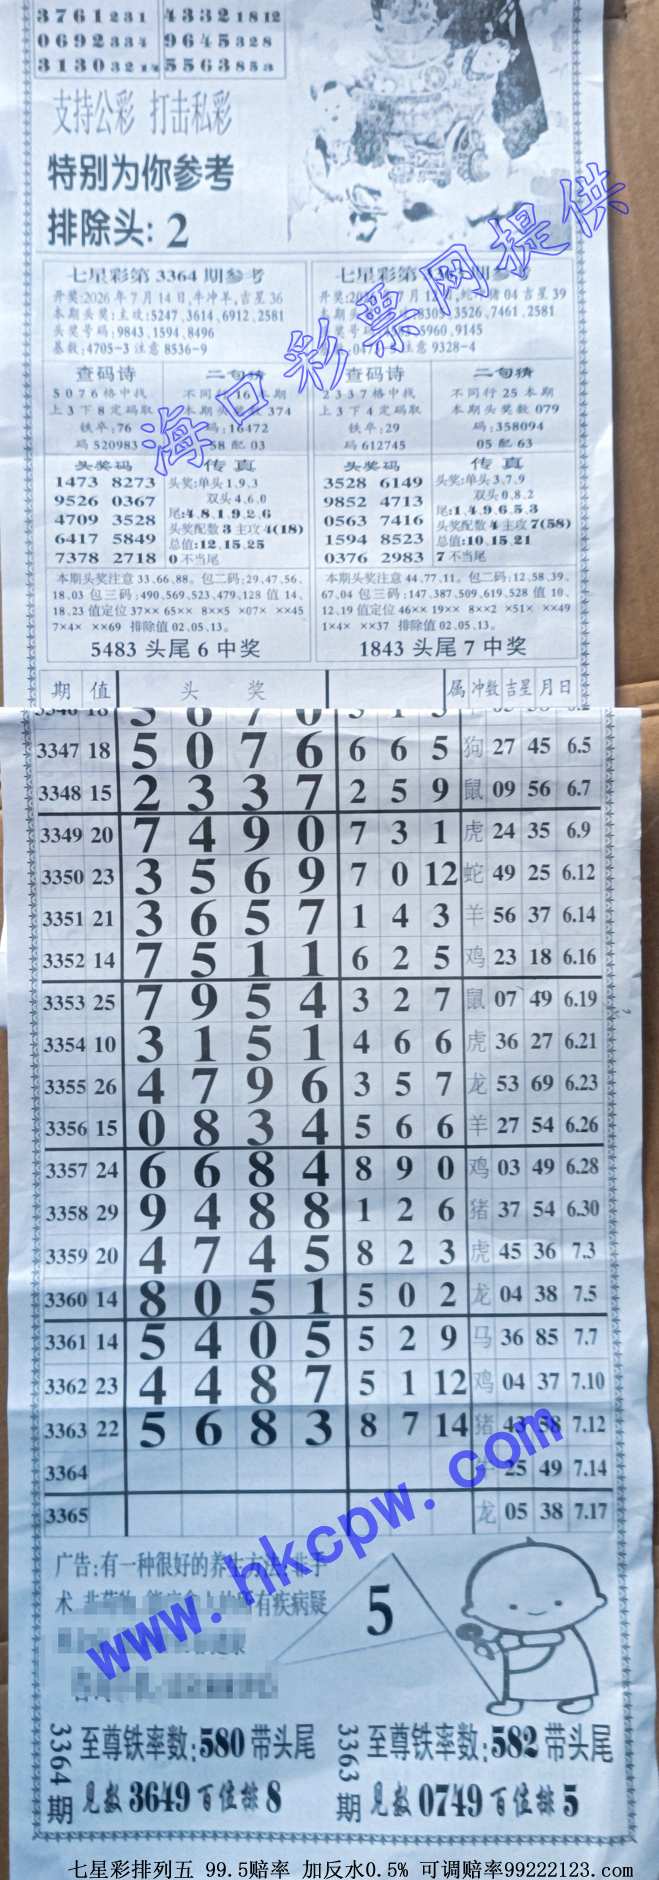 3761231 4332 18 12
0692334 9645328
31303214 5563853
支持公彩 打击私彩
特别为你参考
排除头: 2
七星彩第3364期参考
开奖:2026年7月14日,牛冲羊,吉星36
本期头奖:主攻:5247,3614,6912,2581
头奖号码:9843,1594,8496
基数:4705-3 注意 8536-9
查码诗
5076格中找
上3下8定码取
铁卒:76
码 520983
二句猜
不同行16本期
本期头 374
码:16472
58配03
头奖码
1473 8273
9526 0367
4709 3528
6417 5849
7378 2718
传真
头奖:单头1,9,3
双头4,6,0
尾:4,8,1,9,2,6
头奖配数3主攻4(18)
总值:12,15,25
0不当尾
本期头奖注意33,66,88。包二码:29,47,56,
18,03包三码:490,569,523,479,128 值14,
18,23值定位37×× 65×× 8××5 ×07× ××45
7×4× ××69 排除值02,05,13。
5483头尾6中奖
七星彩第 期参
开奖:20 月12 猪04吉星39
本期头 8305 3526,7461,2581
奖号码: 5960,9145
:047 注意9328-4
查码诗
2337格中找
上3下4定码取
铁卒:29
码 612745
二句猜
不同行25本期
本期头奖数079
码:358094
05配63
头奖码
3528 6149
9852 4713
0563 7416
1594 8523
0376 2983
传真
头奖:单头3,7,9
双头0,8,2
尾:1,4,9,6,5,3
头奖配数4主攻7(58)
总值:10,15,21
7不当尾
本期头奖注意44,77,11。包二码:12,58,39,
67,04包三码:147,387,509,619,528 值10,
12,19值定位46×× 19×× 8××2 ×51× ××49
1×4× ××37 排除值02,05,13。
1843头尾7中奖
期 值 头 奖 属 冲数 吉星 月日
3347 18 5 0 7 6 6 6 5 狗 27 45 6.5
3348 15 2 3 3 7 2 5 9 鼠 09 56 6.7
3349 20 7 4 9 0 7 3 1 虎 24 35 6.9
3350 23 3 5 6 9 7 0 12 蛇 49 25 6.12
3351 21 3 6 5 7 1 4 3 羊 56 37 6.14
3352 14 7 5 1 1 6 2 5 鸡 23 18 6.16
3353 25 7 9 5 4 3 2 7 鼠 07 49 6.19
3354 10 3 1 5 1 4 6 6 虎 36 27 6.21
3355 26 4 7 9 6 3 5 7 龙 53 69 6.23
3356 15 0 8 3 4 5 6 6 羊 27 54 6.26
3357 24 6 6 8 4 8 9 0 鸡 03 49 6.28
3358 29 9 4 8 8 1 2 6 猪 37 54 6.30
3359 20 4 7 4 5 8 2 3 虎 45 36 7.3
3360 14 8 0 5 1 5 0 2 龙 04 38 7.5
3361 14 5 4 0 5 5 2 9 马 36 85 7.7
3362 23 4 4 8 7 5 1 12 鸡 04 37 7.10
3363 22 5 6 8 3 8 7 14 猪 43 58 7.12
3364 牛 25 49 7.14
3365 龙 05 38 7.17
广告:有一种很好的养生方法,非手
术 有疾病疑
5
3364期
至尊铁率数:580带头尾
见数3649百位排8
3363期
至尊铁率数:582带头尾
见数0749百位排5
海口彩票网提供
www.hkcpw.com
七星彩排列五 99.5赔率 加反水0.5% 可调赔率99222123.com